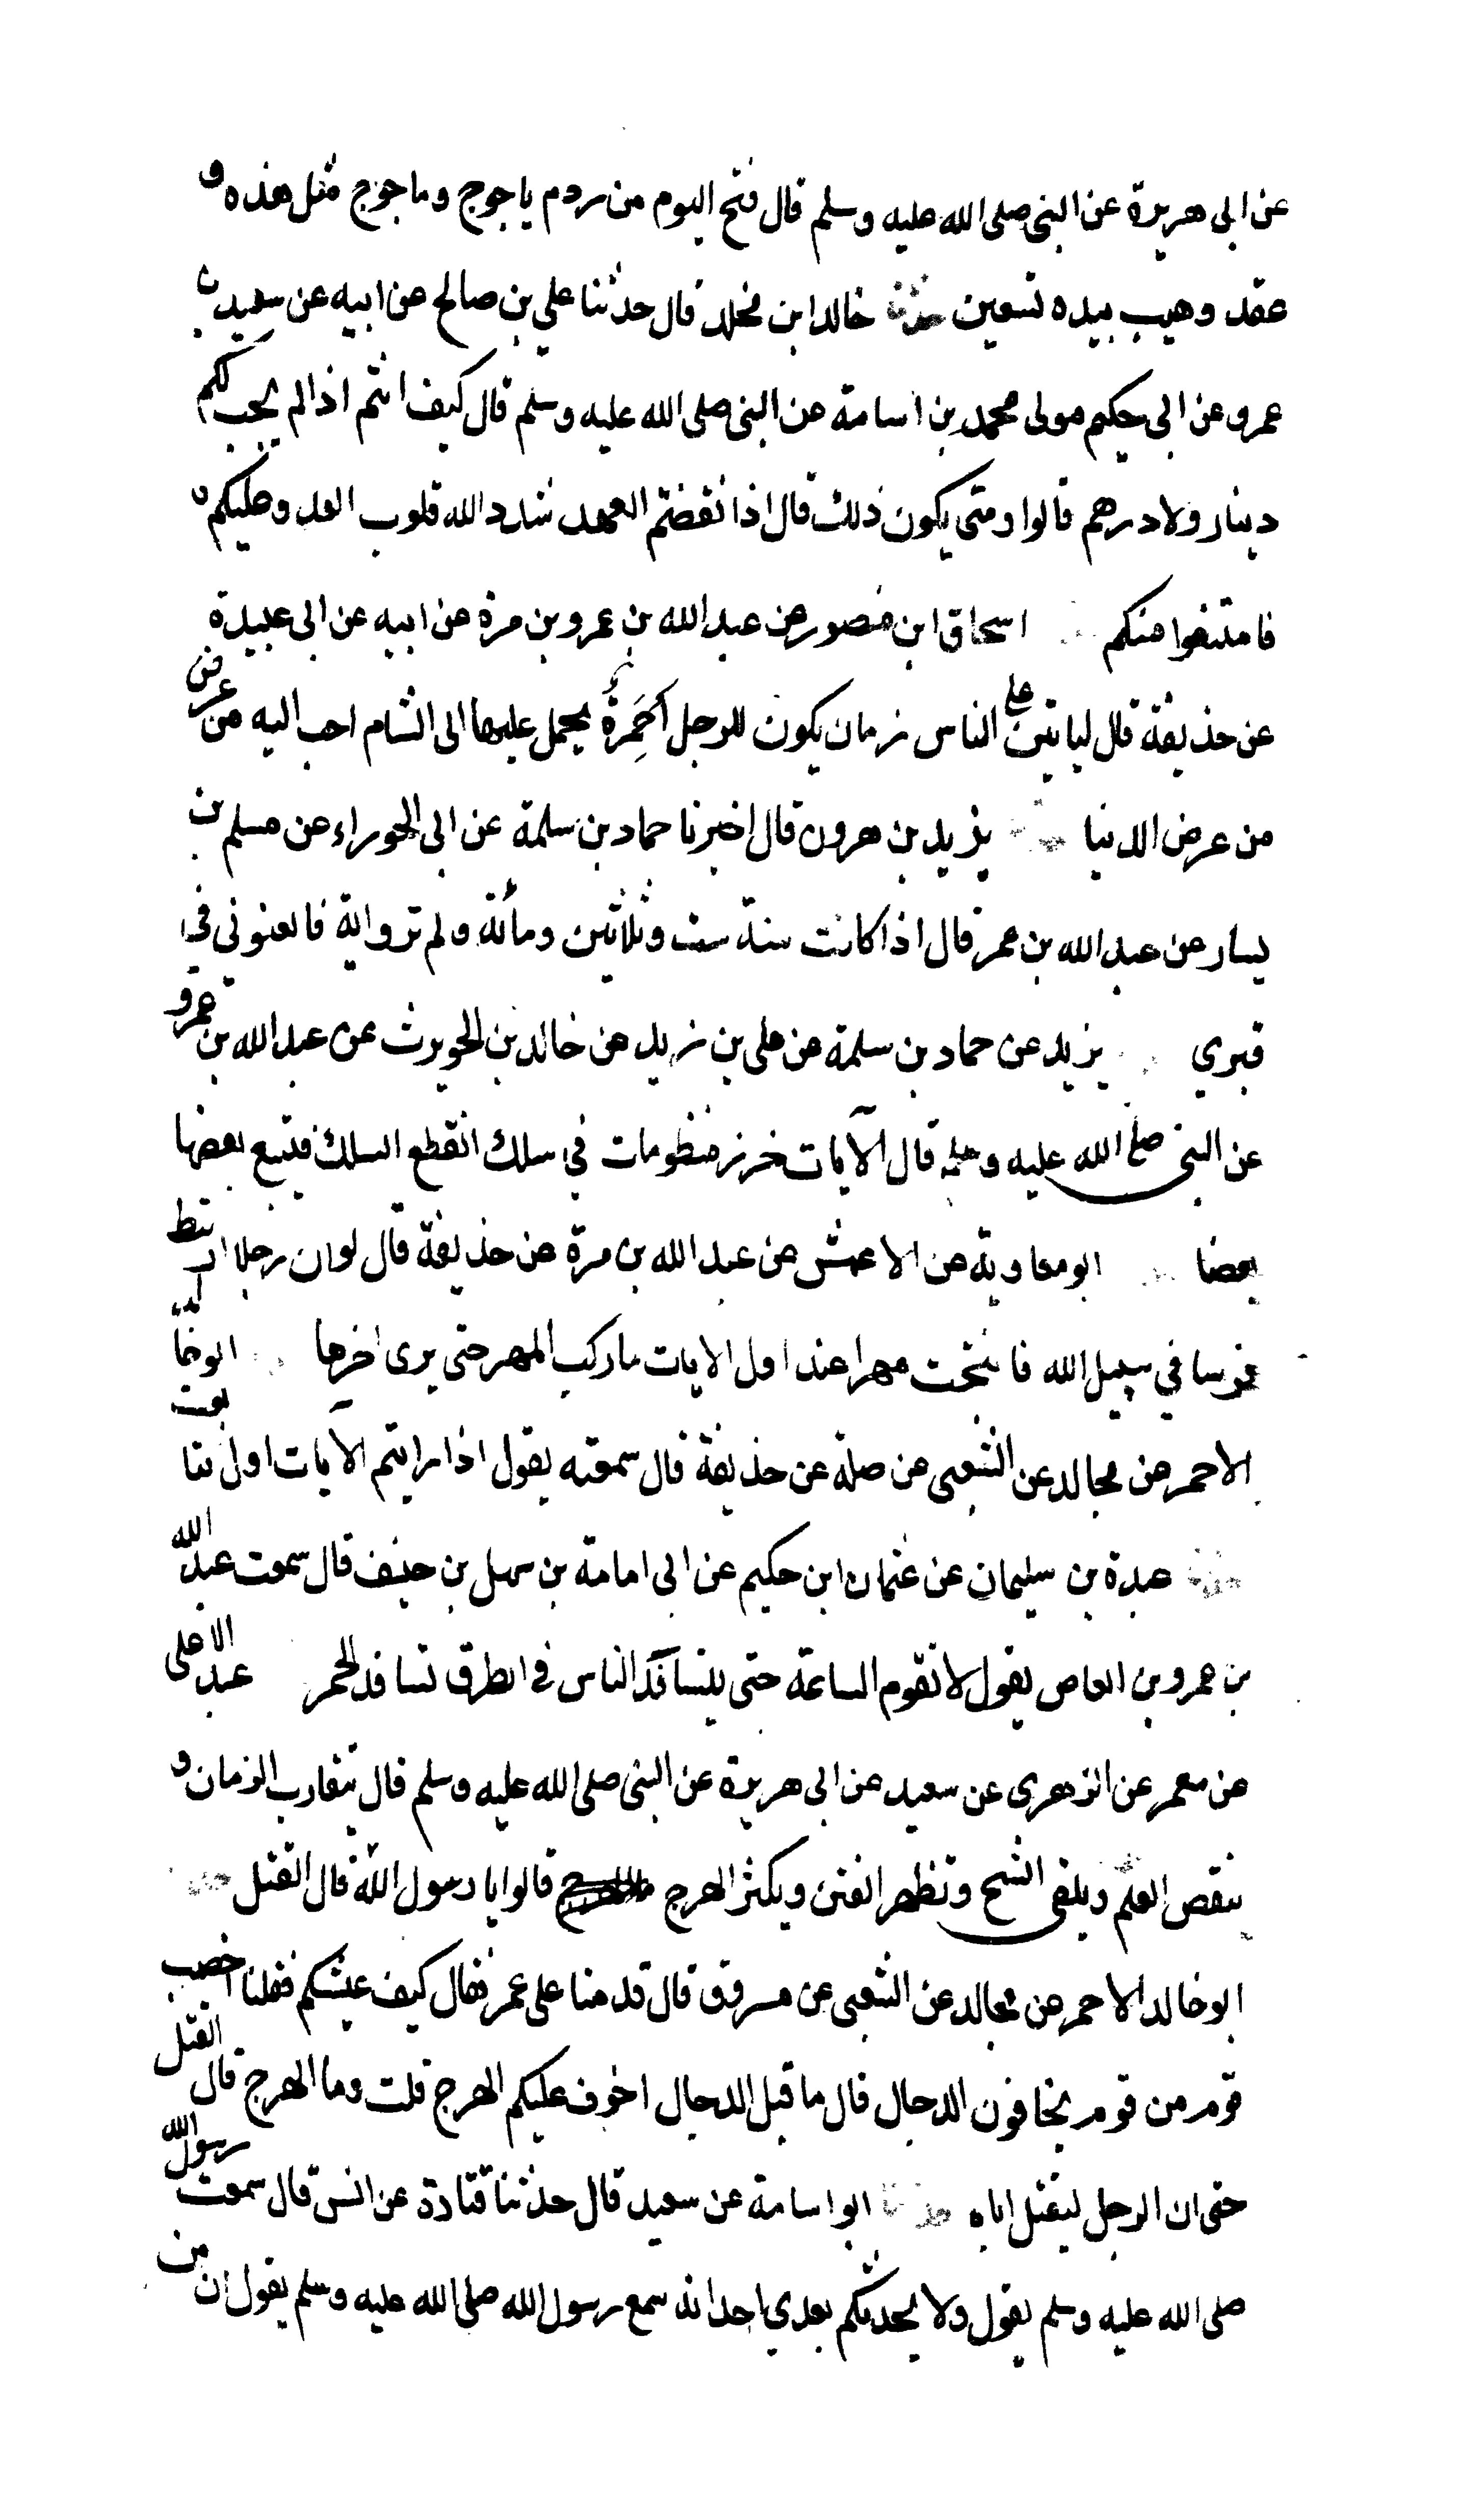 عن ابى هريرة عن النبى صلى الله عليه وسلم قال فتح اليوم من ردم ياجوج وماجوج مثل هذه و
عقد وهيب بيده تسعين حدثنا خالد ابن مخلد قال حدثنا علي بن صالح عن ابيه عن سعيد بن
عمرو عن ابى حكيم مولى محمد بن اسامة عن النبى صلى الله عليه وسلم قال كيف انتم اذا لم يجب لكم
دينار ولا درهم قالوا ومتى يكون ذلك قال اذا نقضتم العهد شدد الله قلوب العدو عليكم
فامتنعوا منكم اسحاق ابن منصور عن عبد الله بن عمرو بن مرة عن ابيه عن ابى عبيدة
عن حذيفة قال لياتين على الناس زمان يكون للرجل احمرة يحمل عليها الى الشام احب اليه من عرض
من عرض الدنيا يزيد بن هرون قال اخبرنا حماد بن سلمة عن ابى الجوراء عن مسلم بن
يسار عن عبد الله بن عمر قال اذا كانت سنة ست وثلاثين ومائة ولم تروا اية فالعنونى فى
قبري يزيد عن حماد بن سلمة عن على بن زيد عن خالد بن الحويرث عن عبد الله بن عمرو
عن النبى صلى الله عليه وسلم قال الآيات خرز منظومات في سلك انقطع السلك فتبع بعضها
بعضا ابو معاوية عن الاعمش عن عبد الله بن مرة عن حذيفة قال لو ان رجلا ارتبط
فرسا في سبيل الله فانتجت مهرا عند اول الايات ما ركب المهر حتى يرى اخرها ابو خالد
الاحمر عن مجالد عن الشعبى عن صلة عن حذيفة قال سمعته يقول اذا رايتم الآيات اولى تتابعت
حدثنا عبدة بن سليمان عن عثمان ابن حكيم عن ابى امامة بن سهل بن حنيف قال سمعت عبد الله
بن عمرو بن العاص يقول لا تقوم الساعة حتى يتسافد الناس فى الطرق تسافد الحمر عبد الاعلى
عن معمر عن الزهرى عن سعيد عن ابى هريرة عن النبى صلى الله عليه وسلم قال يتقارب الزمان و
ينقص العلم ويلقى الشح وتظهر الفتن ويكثر الهرج قالوا يا رسول الله قال القتل حدثنا
ابو خالد الاحمر عن مجالد عن الشعبى عن مسروق قال قدمنا على عمر فقال كيف عيشكم فقلنا اخصب
قوم من قوم يخافون الدجال قال ما قبل الدجال اخوف عليكم الهرج قلت وما الهرج قال القتل
حتى ان الرجل ليقتل اباه حدثنا ابو اسامة عن سعيد قال حدثنا قتادة عن انس قال سمعت رسول الله
صلى الله عليه وسلم يقول ولا يحدثكم بعدي احد انه سمع رسول الله صلى الله عليه وسلم يقول ان من